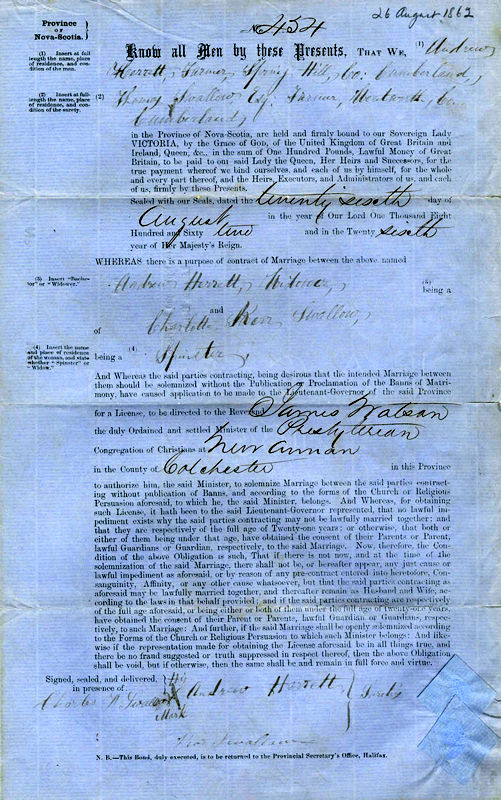 26 August 1862
Province
OF
Nova-Scotia.
No 454
Know all Men by these Presents, THAT WE, (1) Andrew
(1) Insert at full length the name, place of residence, and condition of the men.
Herrett, Farmer, Spring Hill, Co: Cumberland,
(2) Insert at full length the name, place of residence, and condition of the surety.
(2) Thomas Swallow Esq. Farmer, Wentworth, Co.
Cumberland,
in the Province of Nova-Scotia, are held and firmly bound to our Sovereign Lady
VICTORIA, by the Grace of God, of the United Kingdom of Great Britain and
Ireland, Queen, &c., in the sum of One Hundred Pounds, Lawful Money of Great
Britain, to be paid to our said Lady the Queen, Her Heirs and Successors, for the
true payment whereof we bind ourselves, and each of us by himself, for the whole
and every part thereof, and the Heirs, Executors, and Administrators of us, and each
of us, firmly by these Presents.
Sealed with our Seals, dated the twenty sixth day of
August in the year of Our Lord One Thousand Eight
Hundred and Sixty two and in the Twenty sixth
year of Her Majesty's Reign.
WHEREAS there is a purpose of contract of Marriage between the above named
(3) Insert "Bachelor" or "Widower."
Andrew Herrett, Widower, (3) being a
and
of Charlotte Kerr Swallow,
(4) Insert the name and place of residence of the woman, and state whether "Spinster" or "Widow."
being a (4) Spinster,
And Whereas the said parties contracting, being desirous that the intended Marriage between
them should be solemnized without the Publication or Proclamation of the Banns of Matrimony,
have caused application to be made to the Lieutenant-Governor of the said Province
for a License, to be directed to the Reverend James Watson
the duly Ordained and settled Minister of the Presbyterian
Congregation of Christians at New Annan
in the County of Colchester in this Province
to authorize him, the said Minister, to solemnize Marriage between the said parties contracting
without publication of Banns, and according to the forms of the Church or Religious
Persuasion aforesaid, to which he, the said Minister, belongs. And Whereas, for obtaining
such License, it hath been to the said Lieutenant-Governor represented, that no lawful impediment
exists why the said parties contracting may not be lawfully married together; and
that they are respectively of the full age of Twenty-one years; or otherwise, that both or
either of them being under that age, have obtained the consent of their Parents or Parent,
lawful Guardians or Guardian, respectively, to the said Marriage. Now, therefore, the Condition
of the above Obligation is such, That if there is not now, and at the time of the
solemnization of the said Marriage, there shall not be, or hereafter appear, any just cause or
lawful impediment as aforesaid, or by reason of any pre-contract entered into heretofore, Consanguinity,
Affinity, or any other cause whatsoever, but that the said parties contracting as
aforesaid may be lawfully married together, and thereafter remain as Husband and Wife, according
to the laws in that behalf provided; and if the said parties contracting are respectively
of the full age aforesaid, or being either or both of them under the full age of twenty-one years,
have obtained the consent of their Parent or Parents, lawful Guardian or Guardians, respectively,
to such Marriage: And further, if the said Marriage shall be openly solemnized according
to the Forms of the Church or Religious Persuasion to which such Minister belongs: And likewise
if the representation made for obtaining the License aforesaid be in all things true, and
there be no fraud suggested or truth suppressed in respect thereof, then the above Obligation
shall be void, but if otherwise, then the same shall be and remain in full force and virtue.
Signed, sealed, and delivered,
in presence of
His
Andrew Herrett
Mark
Charles
Swallow
N. B.—This Bond, duly executed, is to be returned to the Provincial Secretary's Office, Halifax.